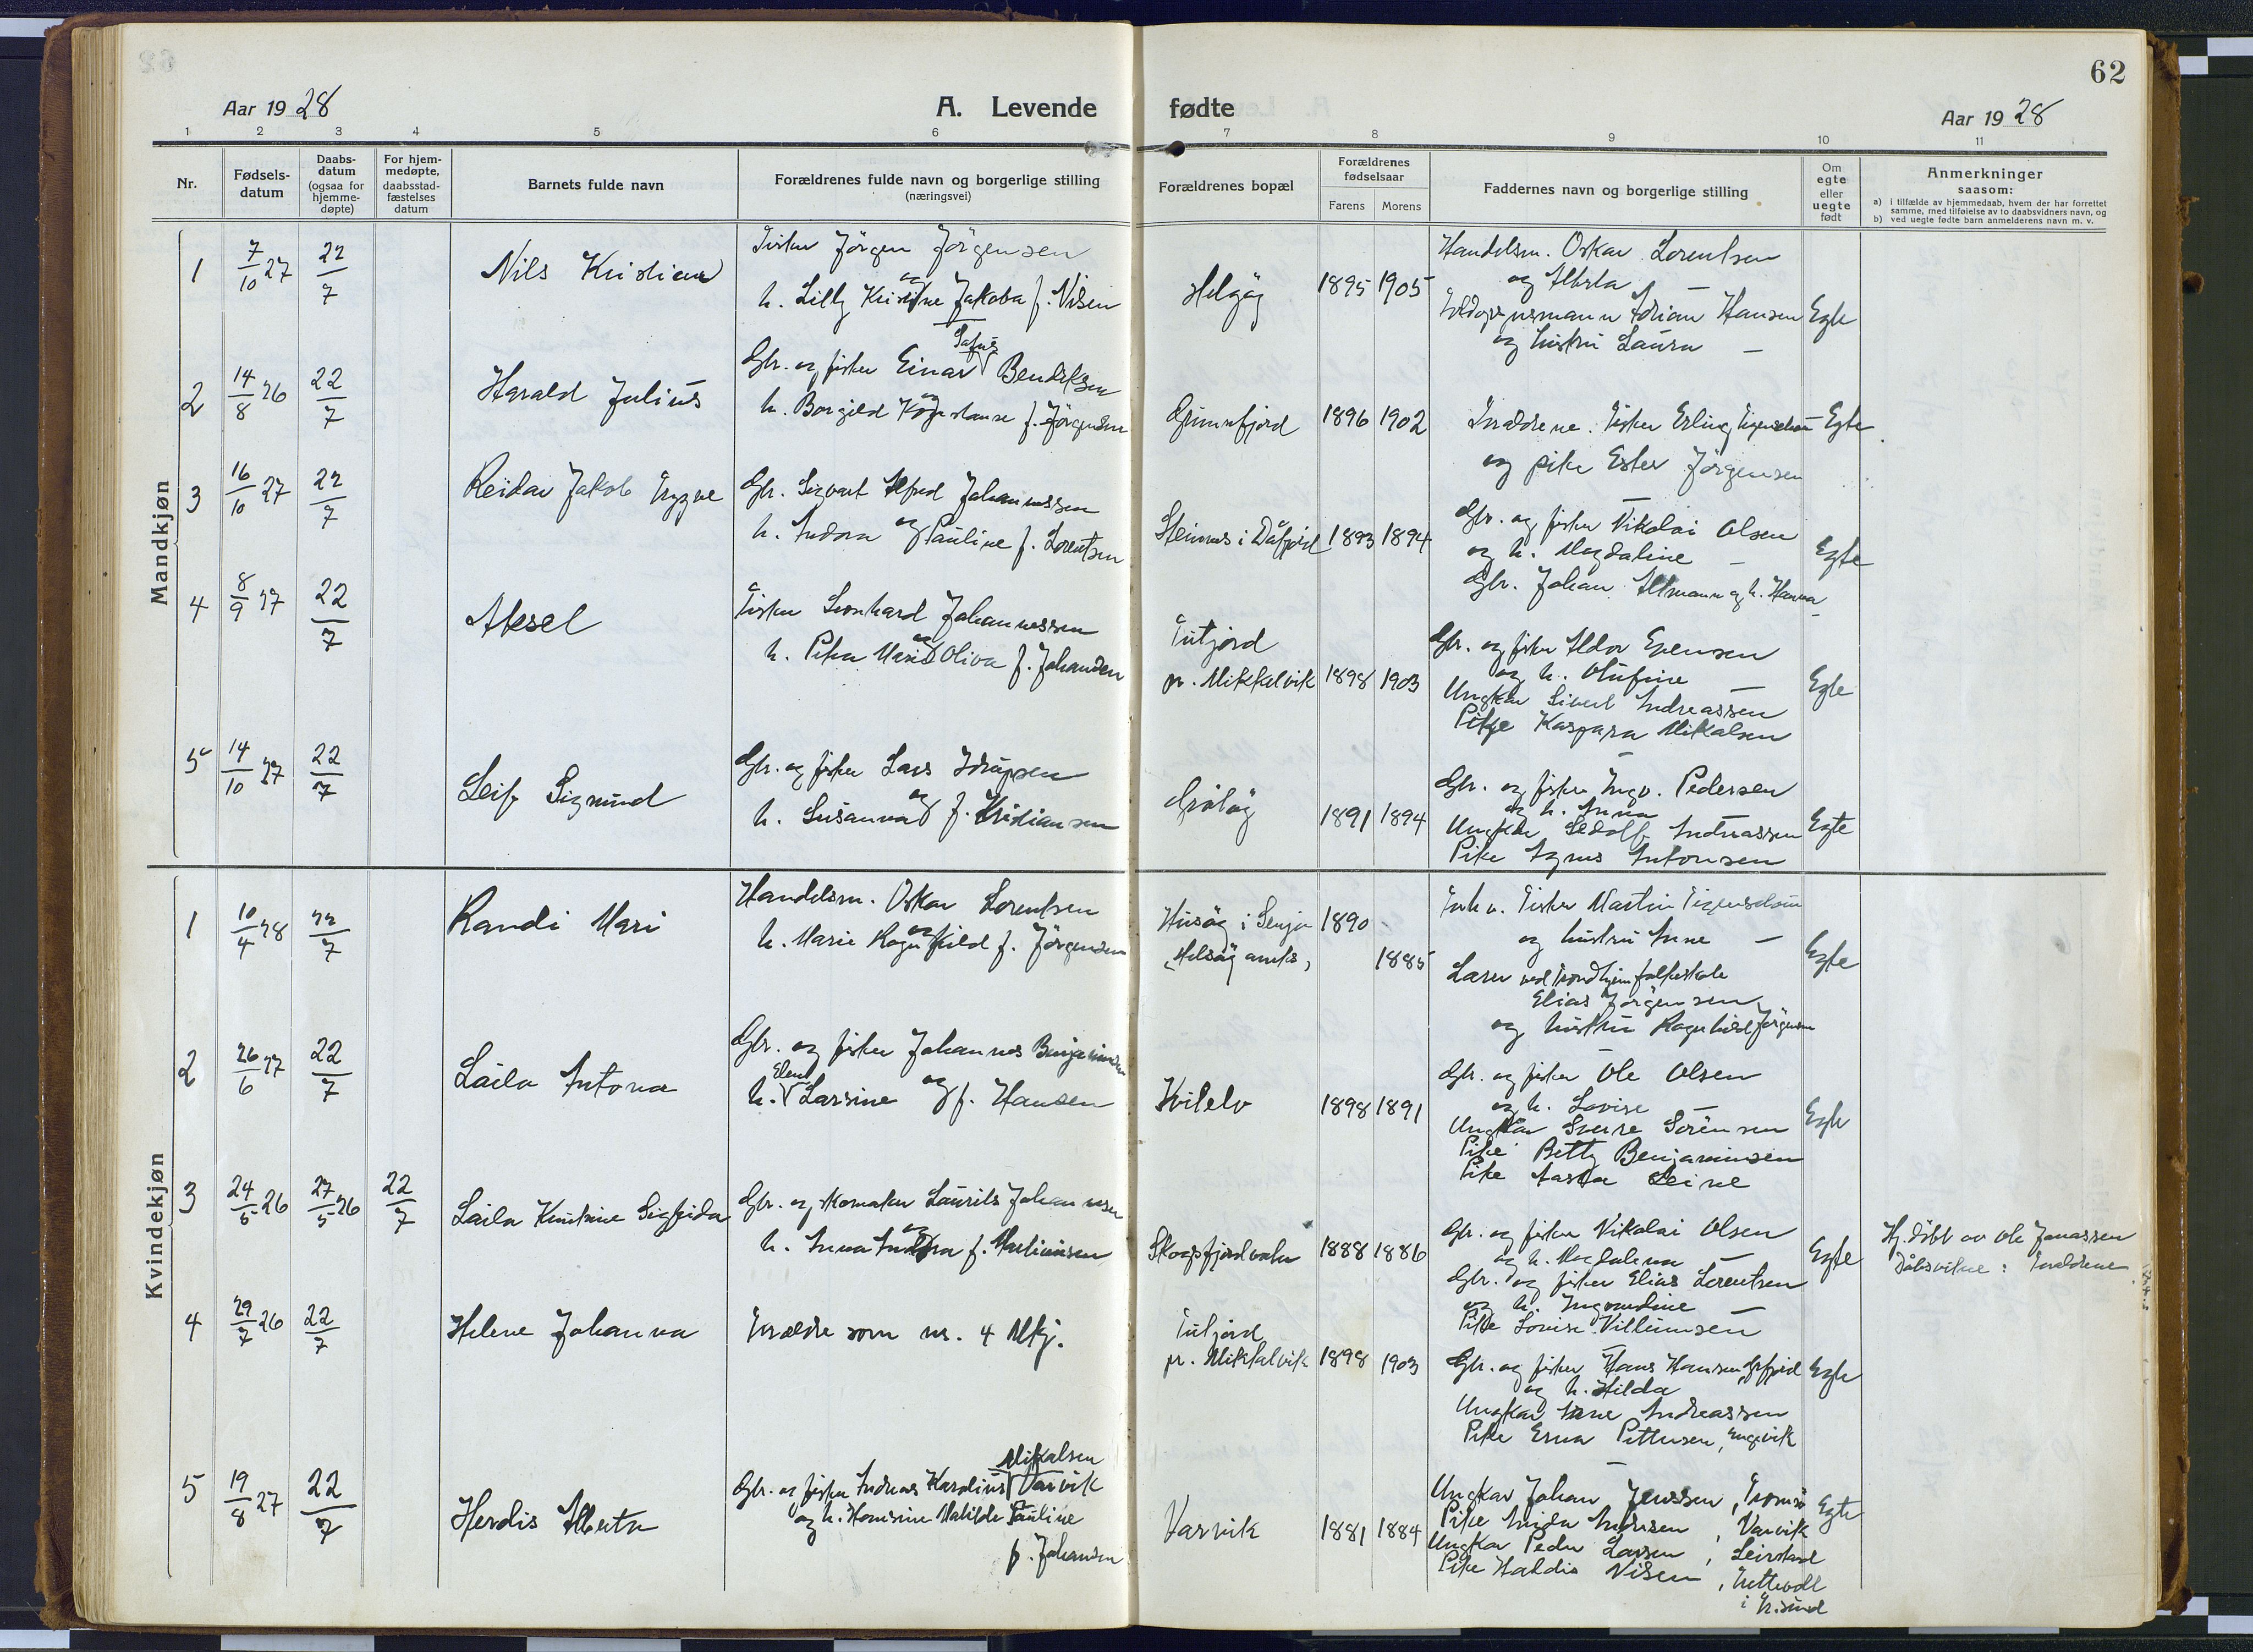 62
Aar 1928
A. Levende fødte
Aar 1928
1 2 3 4 5 6 7 8 9 10 11
Nr.
Fødsels-
datum
Daabs-
datum
(ogsaa for
hjemme-
døpte)
For hjem-
medøpte,
daabsstad-
fæstelses
datum
Barnets fulde navn
Forældrenes fulde navn og borgerlige stilling
(næringsvei)
Forældrenes bopæl
Forældrenes
fødselsaar
Farens Morens
Faddernes navn og borgerlige stilling
Om
egte
eller
uegte
født
Anmerkninger
saasom:
a) i tilfælde av hjemmedaab, hvem der har forrettet
samme, med tilføielse av to daabsvidners navn, og
b) ved uegte fødte barn anmelderens navn m. v.
Mandkjøn
1 7/10 27 22/7 Nils Kristian
Fisker Jörgen Jörgensen
og
h. Lilly Kristine Jakoba f. Nilsen
Helgöy 1895 1905
Handelsm. Oskar Lorentsen
og Alberta —
Adrian Hansen
og hustru Laura —
Egte
2 14/8 26 22/7 Harald Julius
Gbr. og fisker Einar Bendiksen
og
h. Borgild Konstanse f. Jörgensen
Grunnfjord 1896 1902
Forældrene. Fisker Erling
og pike Ester Jörgensen
Egte
3 16/10 27 22/7 Reidar Jakob Trygve
Gbr. Sigvart Alfred Johannessen
og
h. Indora Pauline f. Lorentsen
Steinnes i Dåfjord 1893 1894
Gbr. og fisker Nikolai Olsen
og h. Magdaline —
Gbr. Johan Altmann og h. Hanna
Egte
4 8/9 27 22/7 Aksel
Fisker Leonhard Johannessen
og
h. Petra Marie Oliva f. Johansen
Futjord
pr. Mikkelvik 1898 1903
Gbr. og fisker Aldor Evensen
og h. Olufine —
Ungkar Sivert Andreassen
Pike Kaspara Mikalsen
Egte
5 14/10 27 22/7 Leif Sigmund
Gbr. og fisker Lars
og
h. Susanna f. Kristiansen
Gröröy 1891 1894
Gbr. og fisker Ingv. Pedersen
og h. Anna
Ungkar Sedolf Andreassen
Pike Agnes Antonsen
Egte
Kvindekjøn
1 10/4 28 22/7 Randi Mari
Handelsm. Oskar Lorentsen
og
h. Marie Ragnhild f. Jörgensen
Husöy i Senja 1890
1885
Fisker Martin
og hustru Anne —
Lærer ved Trondhjem folkeskole
Elias Jörgensen
og hustru Ragnhild Jörgensen
Egte
2 26/6 27 22/7 Laila Antona
Gbr. og fisker Johannes Benjaminsen
h. Elen Larsine og f. Hansen
Kvitelv 1898 1891
Gbr. og fisker Ole Olsen
og h. Lovise —
Ungkar Sverre Sörensen
Pike Betty Benjaminsen
Pike Aasta Steine
Egte
3 24/5 26 27/5 26 22/7 Laila Kristine Sigfrida
Gbr. og skomaker Laurits Johannesen
og
h. Anna Andrea f. Martinussen
Skogsfjordvatn 1888 1886
Gbr. og fisker Nikolai Olsen
og h. Magdalena —
Gbr. og fisker Elias Lorentsen
og h. Ingvardine —
Pike Lovise Villumsen
Egte
Hj. döbt av Ole Jonassen
Dåbsvitne: Foreldrene
4 29/7 26 22/7 Helene Johanna
Forældre som nr. 4 Mkj.
Futjord
pr. Mikkelvik 1898 1903
Gbr. og fisker Hans Hansen,
og h. Hilda
Ungkar Arne Andreassen
Pike Erna Pettersen, Engvik
Egte
5 19/8 27 22/7 Herdis Alberta
Mikalsen
Gbr. og fisker Andreas Karolius Varvik
og h. Hansine Matilde Pauline
f. Johansen
Varvik 1881 1884
Ungkar Johan Jenssen, Tromsö
Pike Andersen, Varvik
Ungkar Peder Larsen, Leirstrand
Pike Haldis Nilsen,
Egte